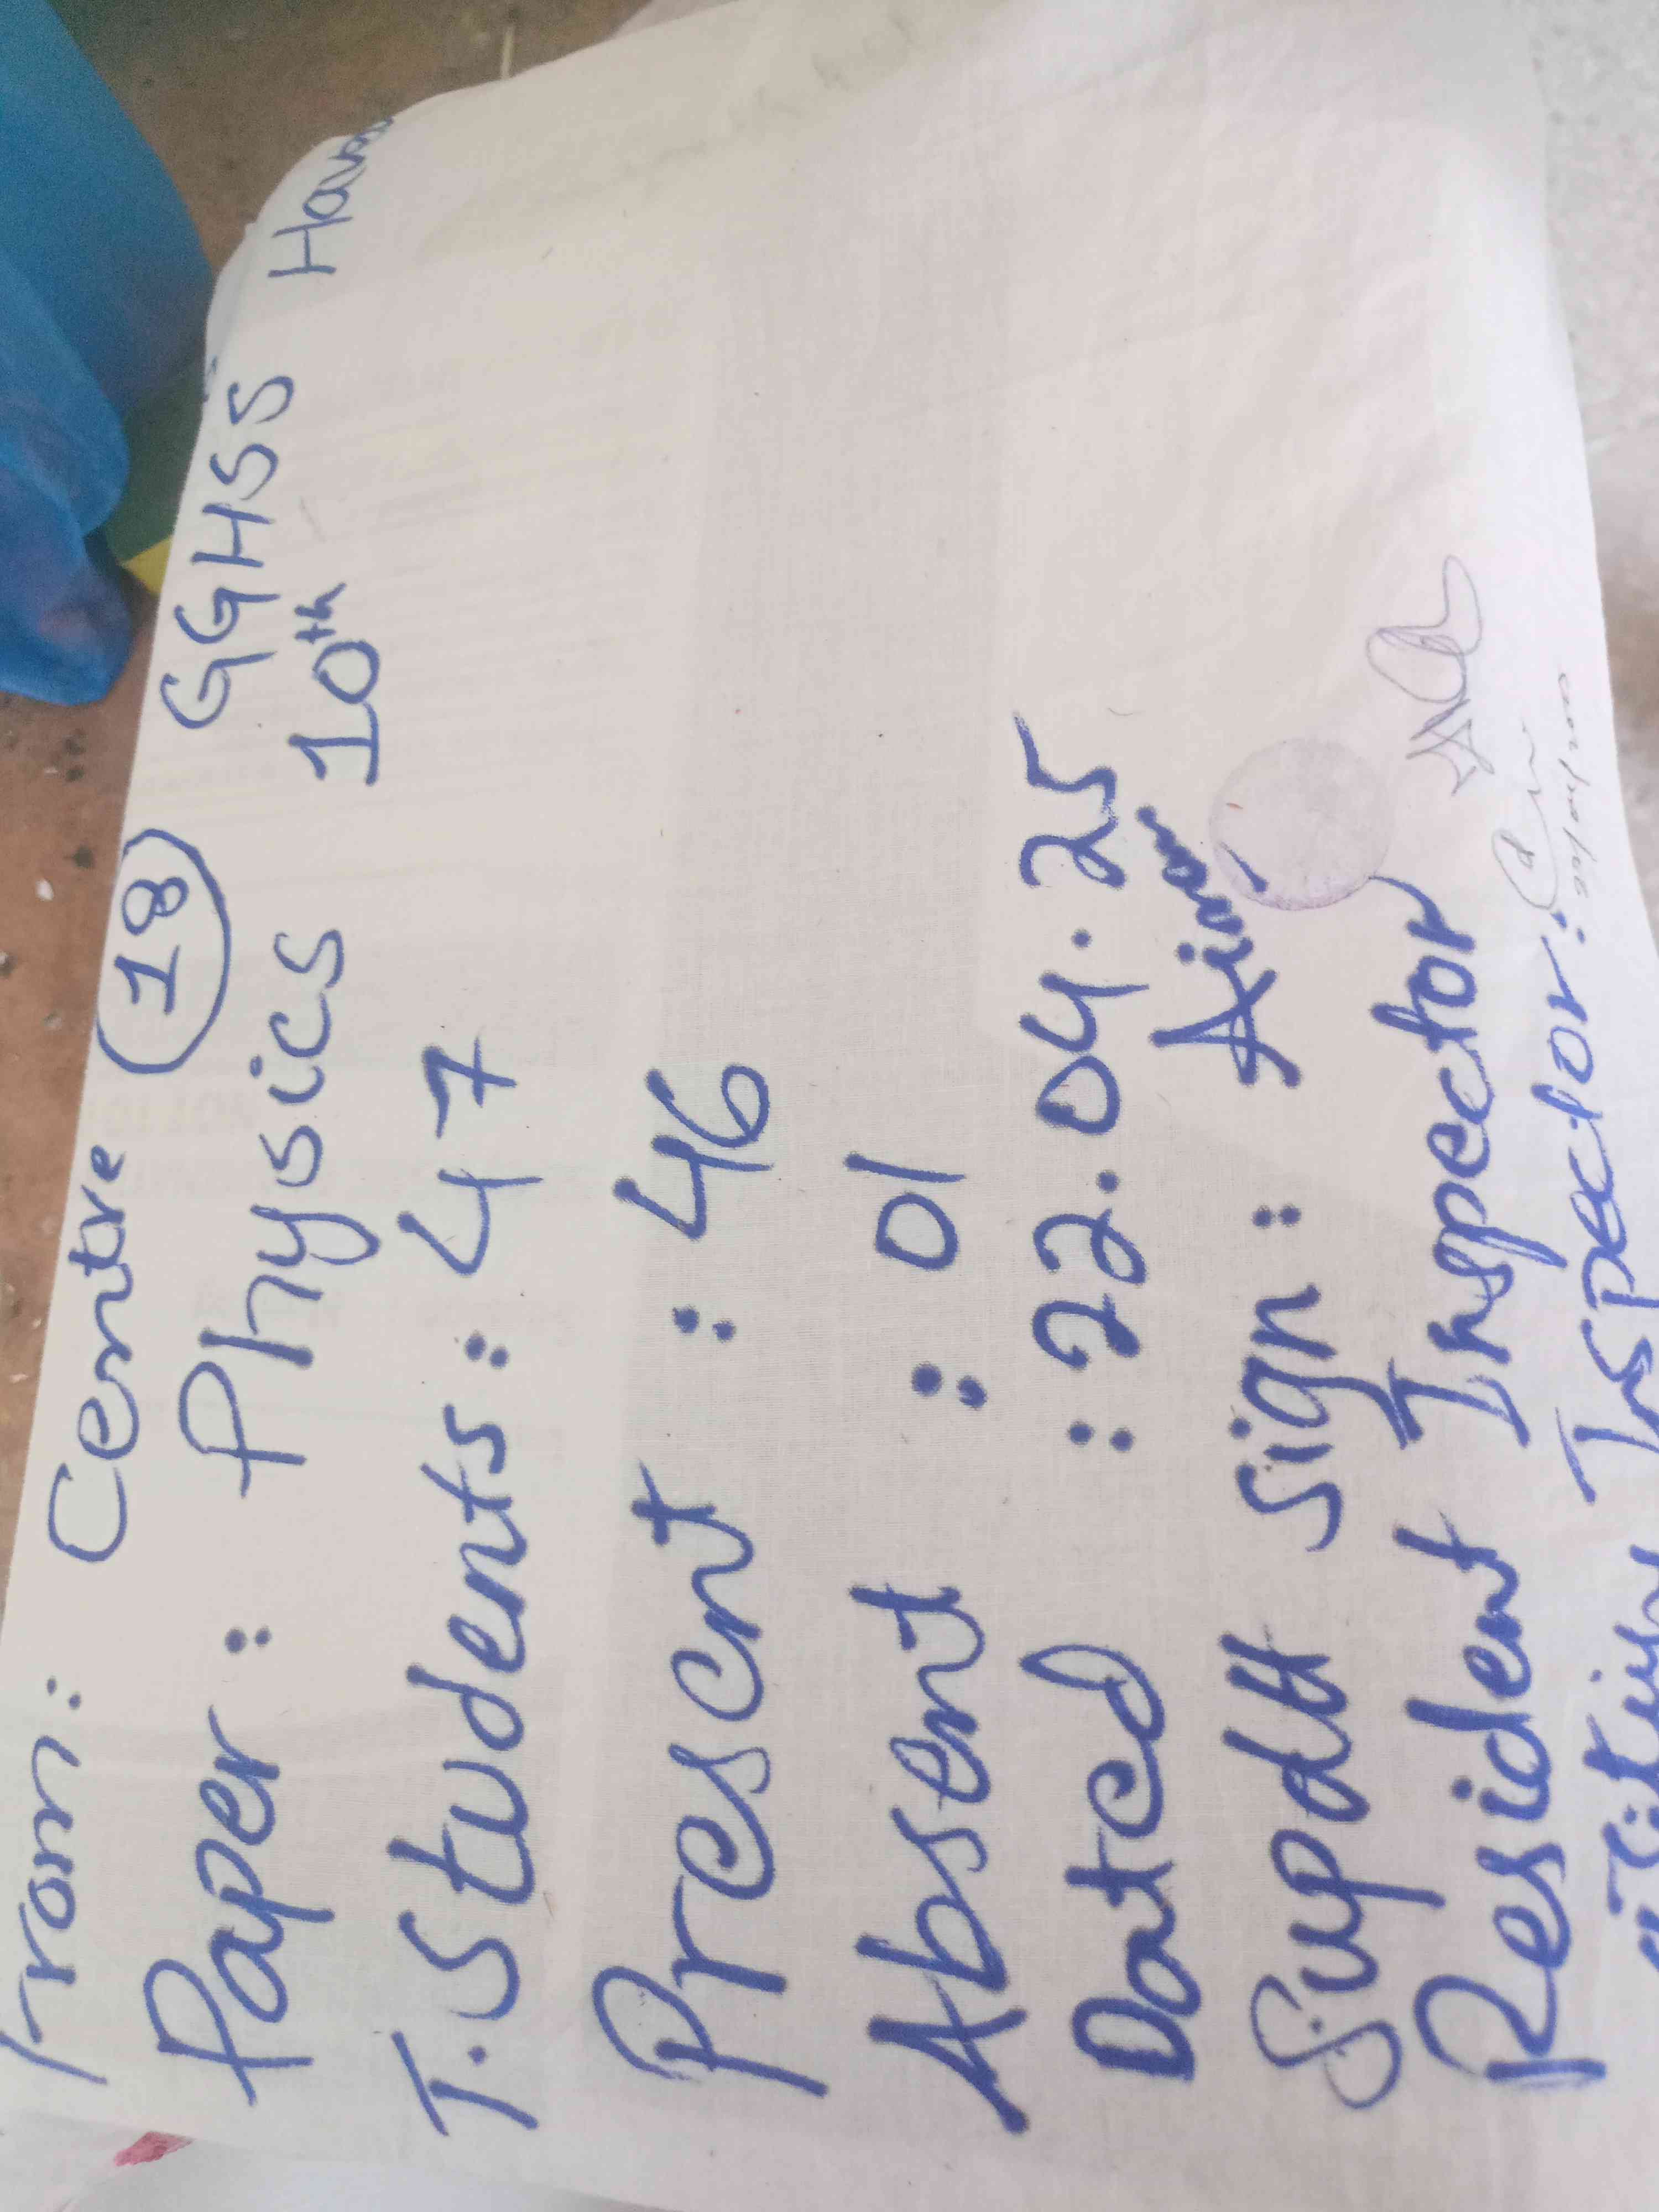 From: Centre 18 GGHSS
Paper: Physics 10th
T. Students: 47
Present : 46
Absent : 01
Dated : 22.04.25
Supdtt Sign:
Resident Inspector
Inspector: